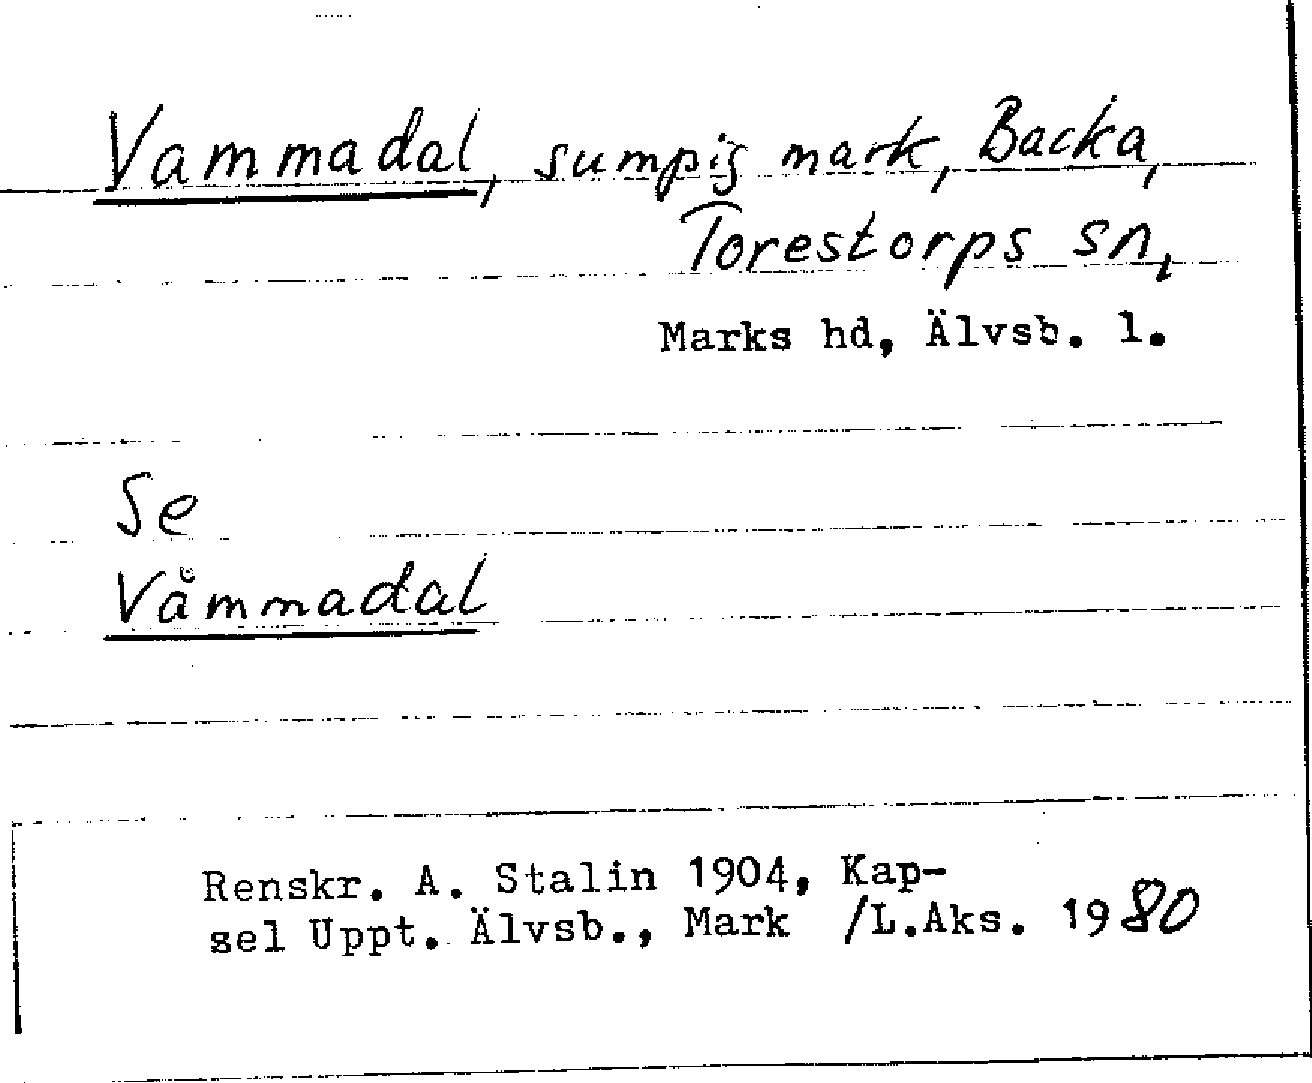 Vammadal, sumpig mark, Backa,
Torestorps sn,
Marks hd, Älvsb. l.
Se
Våmmadal
Renskr. A. Stalin 1904, Kap-
sel Uppt. Älvsb., Mark /L.Aks. 1980